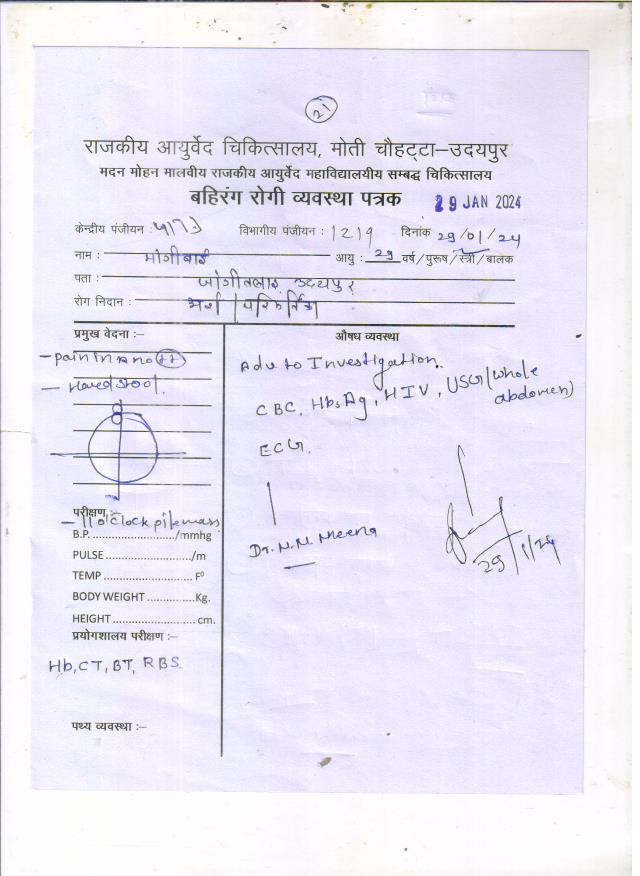 21
राजकीय आयुर्वेद चिकित्सालय, मोती चौहट्टा–उदयपुर
मदन मोहन मालवीय राजकीय आयुर्वेद महाविद्यालयीय सम्बद्ध चिकित्सालय
बहिरंग रोगी व्यवस्था पत्रक 29 JAN 2024
केन्द्रीय पंजीयन : 5173 विभागीय पंजीयन : 1219 दिनांक 29/01/24
नाम : मांगीबाई आयु : 29 वर्ष/पुरूष/स्त्री/बालक
पता : उदयपुर
रोग निदान : अर्श / परिकर्तिका
प्रमुख वेदना :–
- pain in ano (++)
- Hard stool.
परीक्षण :–
- 11 o'clock pile mass
B.P. ........................../mmhg
PULSE ............................../m
TEMP ............................ F⁰
BODY WEIGHT ...............Kg.
HEIGHT .......................... cm.
प्रयोगशालय परीक्षण :–
Hb, CT, BT, RBS.
पथ्य व्यवस्था :–
औषध व्यवस्था
Adv to Investigation.
CBC, HbsAg, HIV, USG (whole abdomen)
ECG.
Dr. N.N. Meena
29/1/24